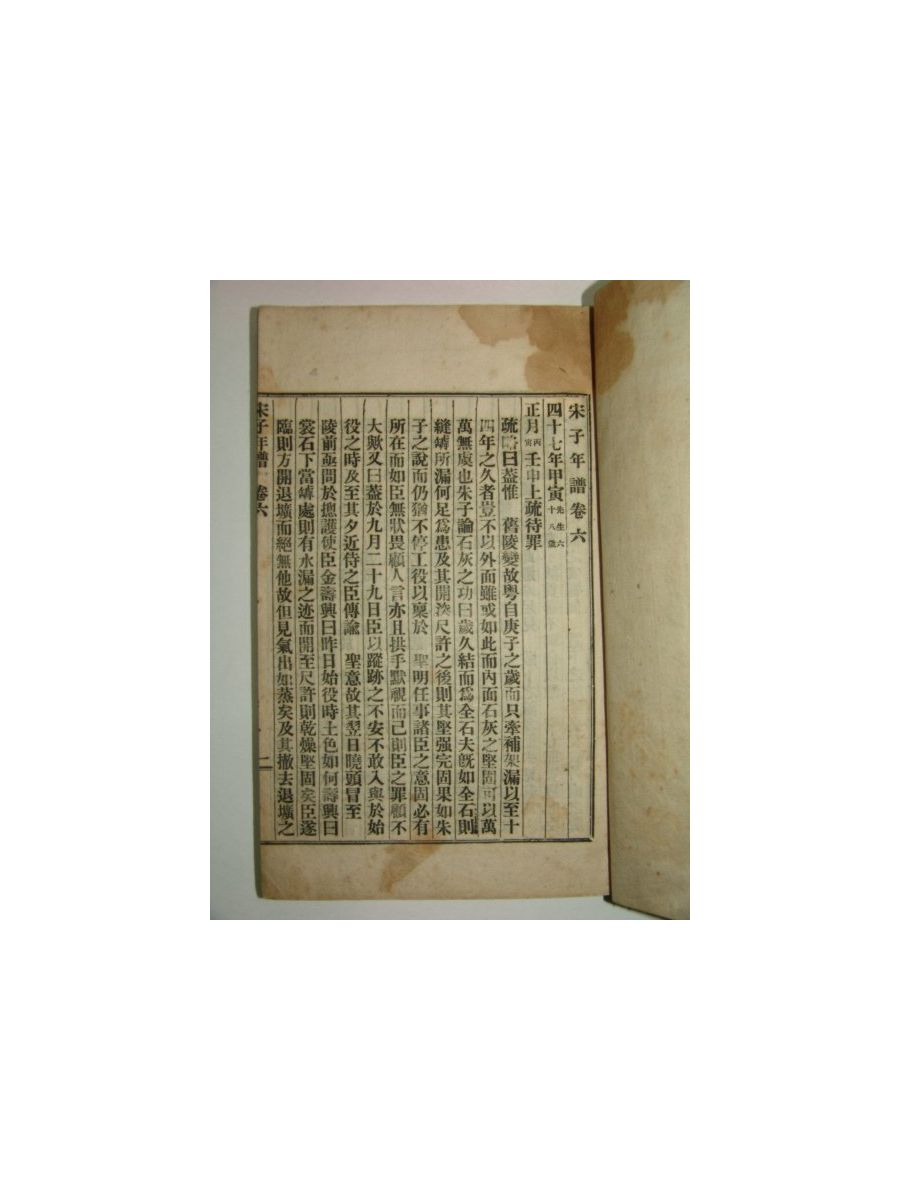 宋子年譜卷六
四十七年甲寅先生六十八歲
正月丙寅壬申上疏待罪
疏略曰蓋惟 舊陵變故粤自庚子之歲而只牽補架漏以至十
四年之久者豈不以外面雖或如此而內面石灰之堅固可以萬
萬無虞也朱子論石灰之功曰歲久結而爲全石夫旣如全石則
縫罅所漏何足爲患及其開浚尺許之後則其堅强完固果如朱
子之說而仍猶不停工役以稟於 聖明任事諸臣之意固必有
所在而如臣無狀畏顧人言亦且拱手默視而已則臣之罪顧不
大歟又曰蓋於九月二十九日臣以蹤跡之不安不敢入與於始
役之時及至其夕近侍之臣傳諭 聖意故其翌日曉頭冒至
陵前亟問於摠護使臣金壽興曰昨日始役時土色如何壽興曰
裳石下當罅處則有水漏之迹而開至尺許則乾燥堅固矣臣遂
臨則方開退壙而絕無他故但見氣出如蒸矣及其撤去退壙之
宋子年譜 卷六 一